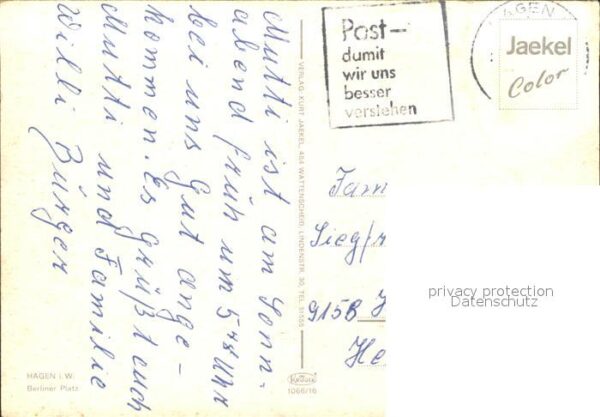 Mutti ist am Sonn-
abend früh um 5⁴⁸ Uhr
bei uns gut ange-
kommen. Es grüßt euch
Mutti und Familie
Willi Bürger
HAGEN i. W.
Berliner Platz
VERLAG KURT JAEKEL, 464 WATTENSCHEID, LINDENSTR. 30, TEL.
1066/16
Post-
damit
wir uns
besser
verstehen
HAGEN
Jaekel
Color
Fam
Siegfr
915B
He
privacy protection
Datenschutz